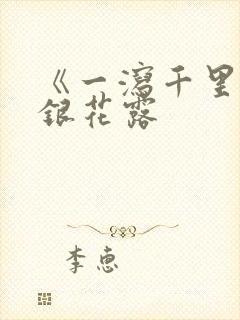 《一瀉千里
銀花露
李惠